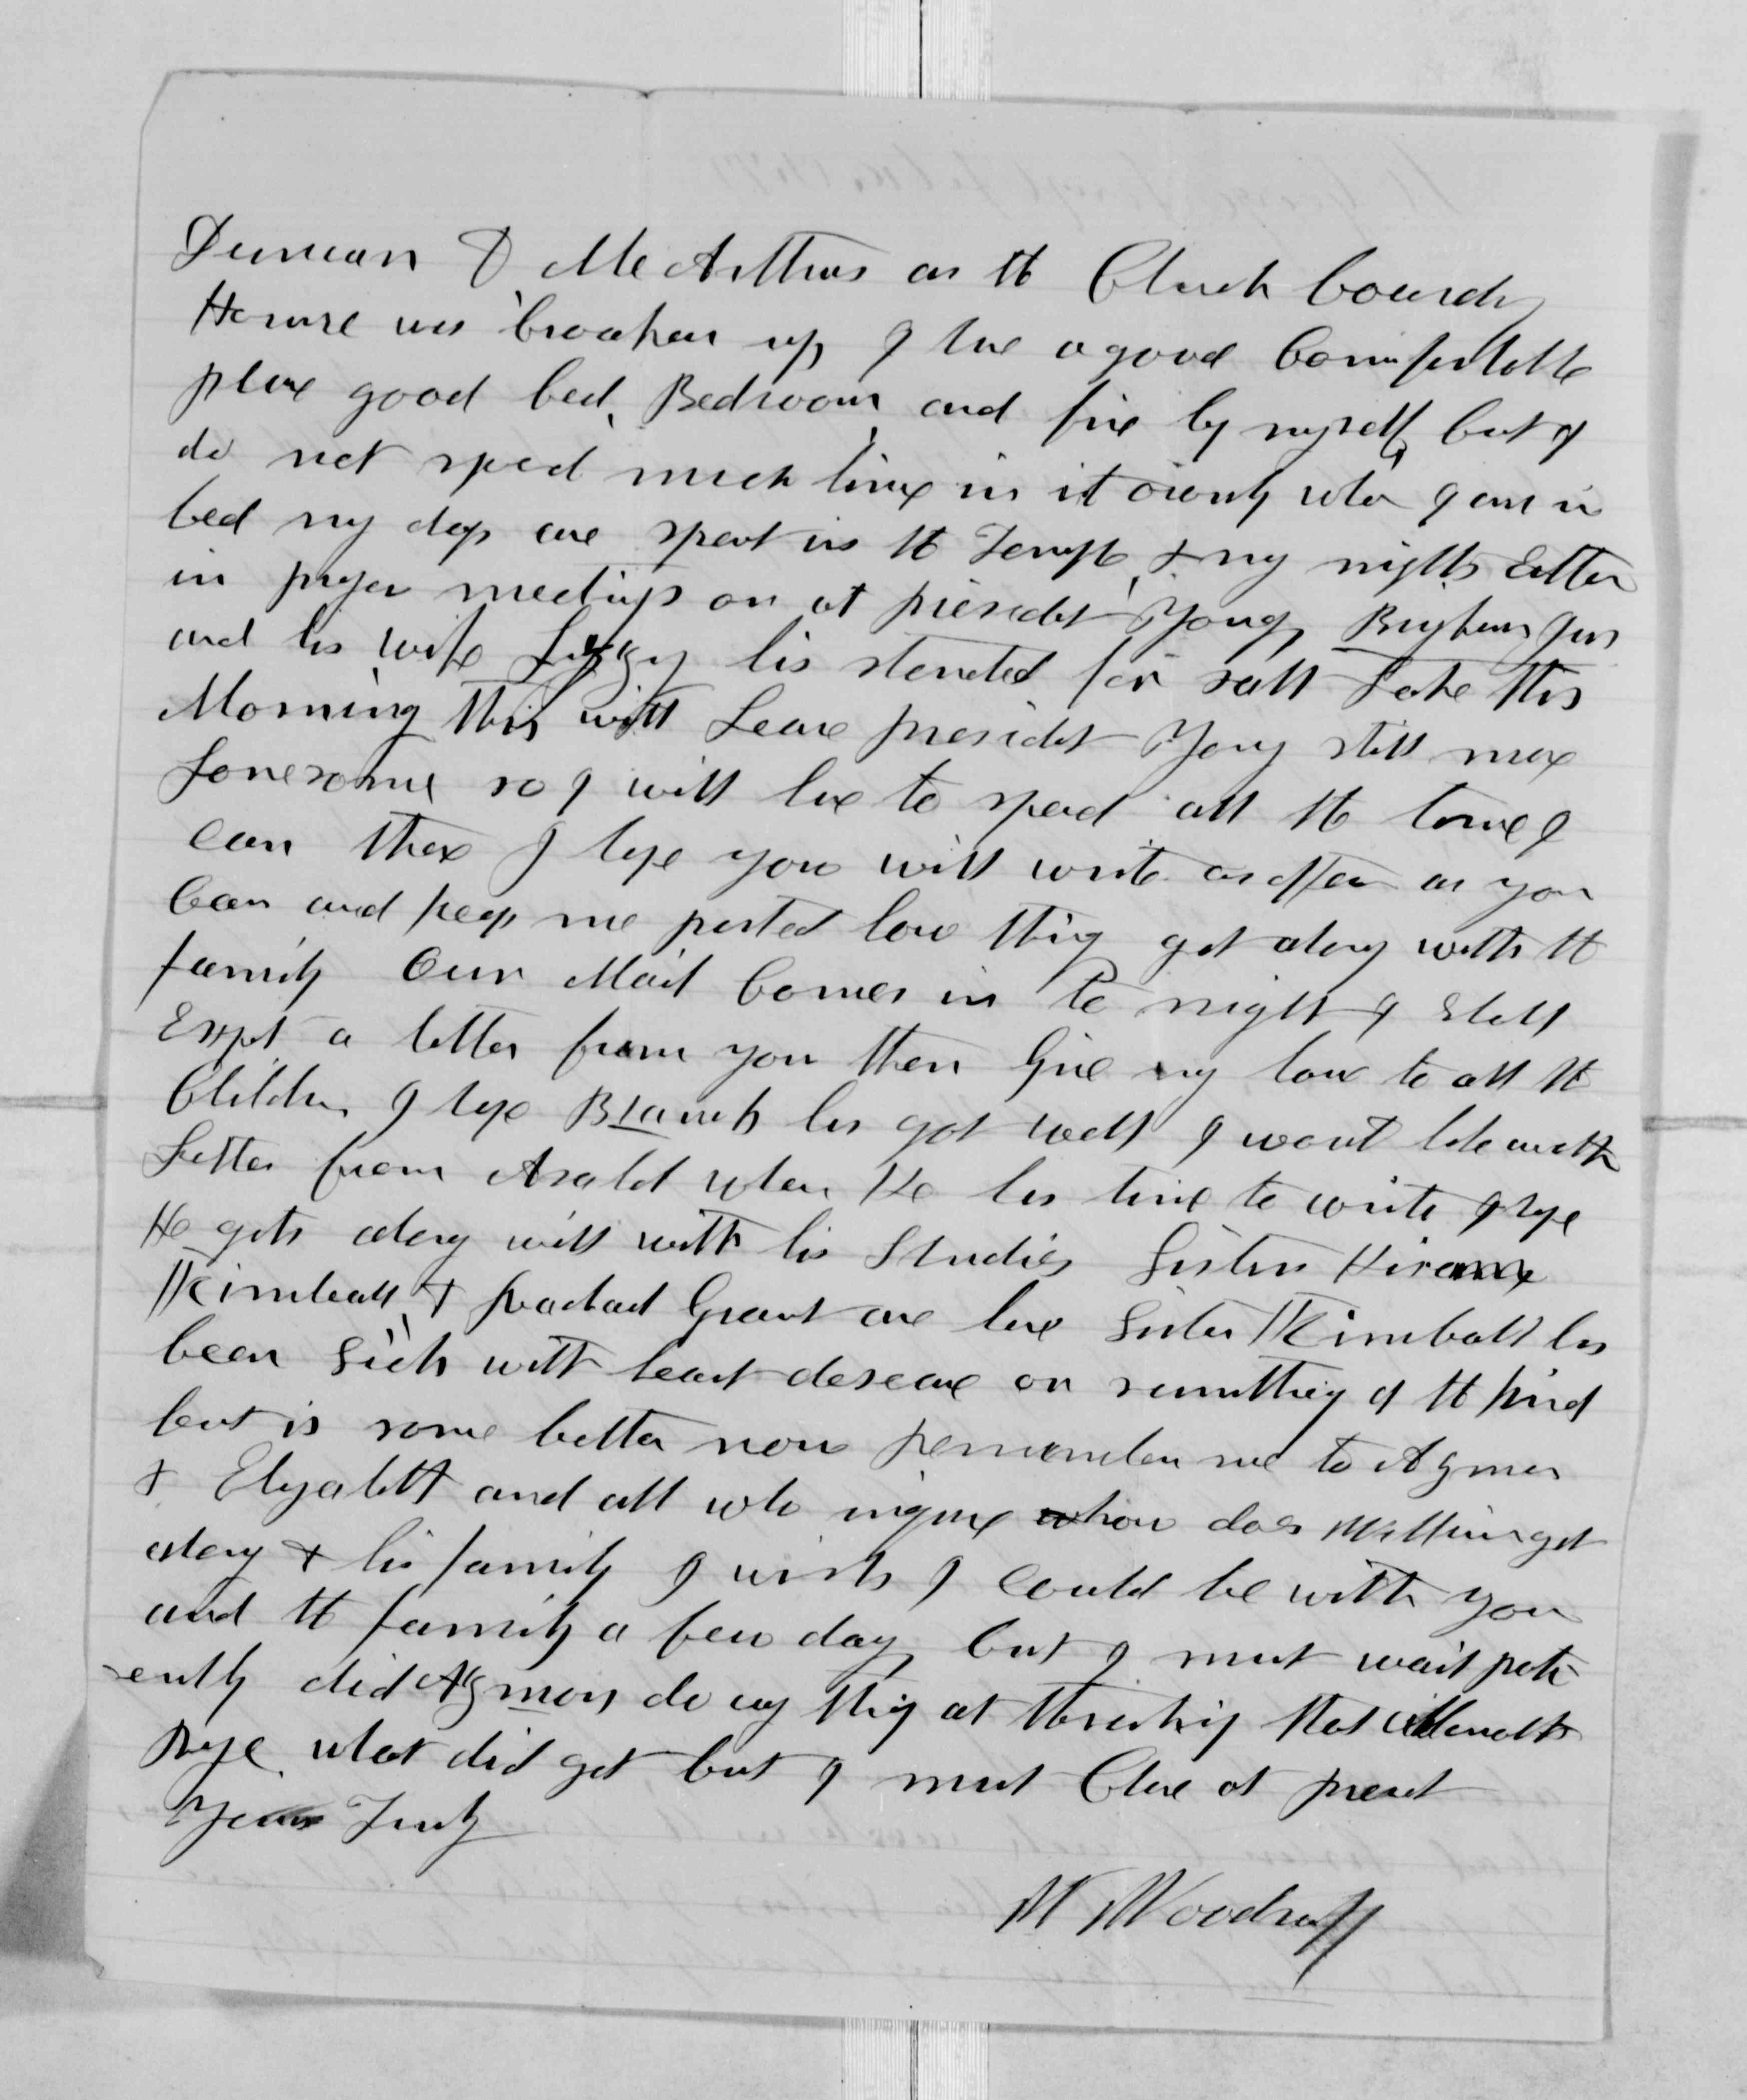 Duncan D McArthurs as the Church Boarding
House was broaken up I have a good Comfortable
place good bed, Bedroom, and fire by myself, but I
do not spend much time in it ownly when I am in
bed my days are spent in the Temple, & my nights Either
in prayer meetings or at president Youngs, Brigham Jun
and his wife Lizzy has started for salt Lake this
Morning this will Leave president Young still more
Lonesome so I will have to spend all the time I
can there I hope you will write as often as you
Can and keep me posted how things get along with the
family Our Mail Comes in to night I shall
Expect a letter from you then Give my love to all the
Children I hope Blanch has got well I want like with
Letter from Asahel when He has time to write I hope
He gets along well with his Studies Sister Hiram
Kimball, & Rachael Grant are here Sister Kimball has
been Sick with heart desease or sumthing of the kind
but is some better now remember me to Azmon
& Elizabeth and all who inquire how does William get
along & his family I wish I could be with you
and the family a few days but I must wait pati-
-ently did Azmon do any thing at thrashing that
Rye, what did get but I must Close at present
Yours Truly
W Woodruff